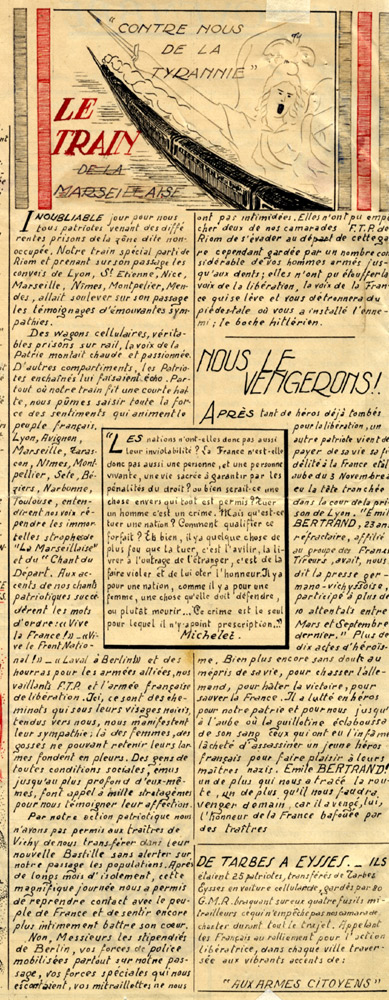 "CONTRE NOUS
DE LA
TYRANNIE"
LE
TRAIN
DE LA
MARSEILLAISE
INOUBLIABLE jour pour nous
tous patriotes venant des diffé
rentes prisons de la zône dite non-
occupée. Notre train spécial parti de
Riom et prenant sur son passage les
convois de Lyon, St Etienne, Nice,
Marseille, Nimes, Montpelier, Men-
des, allait soulever sur son passage
les témoignages d'émouvantes sym-
pathies.
Des wagons cellulaires, vérita-
bles prisons sur rail, la voix de la
Patrie montait chaude et passionnée.
D'autres compartiments, les Patrio-
tes enchaînés lui faisaient écho. Par-
tout où notre train fit une courte hal
te, nous pûmes saisir toute la for-
ce des sentiments qui animent le
peuple français.
Lyon, Avignon,
Marseille, Taras-
con, Nîmes, Mont-
pellier, Sète, Bé-
giers, Narbonne,
Toulouse, enten-
dirent nos voix ré-
pendre les immor-
telles strophes de
"La Marseillaise"
et du "Chant du
Départ". Aux ac-
cents de nos chants
patriotiques succé
dèrent les mots
d'ordre: «Vive
la France!» «Vi-
ve le Front Natio-
nal!» «Laval à Berlin!» et des
hourras pour les armées alliées, nos
vaillants F.T.P. et l'armée française
de libération. Ici, ce sont des che-
minots qui sous leurs visages noircis,
tendus vers nous, nous manifestent
leur sympathie; là des femmes, des
gosses ne pouvant retenir leurs lar
mes fondent en pleurs. Des gens de
toutes conditions sociales, émus
jusqu'au plus profond d'eux-mê-
mes, font appel à mille stratagèmes
pour nous témoigner leur affection.
Par notre action patriotique nous
n'avons pas permis aux traîtres de
Vichy de nous transférer dans leur
nouvelle Bastille sans alerter sur
notre passage les populations. Après
de longs mois d'isolement, cette
magnifique journée nous a permis
de reprendre contact avec le peu-
ple de France et de sentir encore
plus intimement battre son cœur.
Non, Messieurs les stipendiés
de Berlin, vos forces de police
mobilisées partout sur notre pas-
sage, vos forces spéciales qui nous
escortaient, vos mitraillettes ne nous
ont pas intimidées. Elles n'ont pu empê
cher deux de nos camarades F.T.P. de
Riom de s'évader au départ de cette ga
re cependant gardée par un nombre con
sidérable de vos hommes armés jus-
qu'aux dents; elles n'ont pu étouffer la
voix de la libération, la voix de la Fran
ce qui se lève et vous détrennera du
piédestale où vous a installé l'enne-
mi; le boche hitlérien.
NOUS LE
VENGERONS!
APRÈS tant de héros déjà tombés
pour la libération, un
autre patriote vient de
payer de sa vie sa fi
délité à la France et à l'
aube du 3 Novembre a
eu la tête tranchée
dans la cour de la pri
son de Lyon. "Emile
BERTRAND, 23 ans,
réfractaire, affilié
au groupe des Francs
Tireurs, avait, nous
dit la presse ger-
mano-vichyssoise,
participé à plus de
10 attentats entre
Mars et Septembre
dernier." Plus de
dix actes d'héroïs-
me. Bien plus encore sans doute au
mépris de sa vie, pour chasser l'alle-
mand, pour hater la victoire, pour
sauver la France. Il a lutté en héros
pour notre patrie et pour nous jusqu'
à l'aube où la guillotine éclaboussa
de son sang ceux qui ont eu l'infâme
lâcheté d'assassiner un jeune héros
français pour faire plaisir à leurs
maîtres nazis. Emile BERTRAND!
un de plus qui nous a tracé la rou-
te, un de plus qu'il nous faudra
venger demain, car il a vengé, lui,
l'honneur de la France bafouée par
des traîtres
"LES nations n'ont-elles donc pas aussi
leur inviolabilité? La France n'est-elle
donc pas aussi une personne, et une personne
vivante, une vie sacrée à garantir par les
pénalités du droit? ou bien serait-ce une
chose envers qui tout est permis? Tuer
un homme c'est un crime. Mais qu'est-ce
tuer une nation? Comment qualifier ce
forfait? Eh bien, il y a quelque chose de
plus fou que la tuer, c'est l'avilir, la li-
vrer à l'outrage de l'étranger, c'est de la
faire violer et de lui ôter l'honneur. Il y a
pour une nation, comme il y a pour une
femme, une chose qu'elle doit défendre,
ou plutôt mourir... Ce crime est le seul
pour lequel il n'y a point prescription..."
Michelet.
DE TARBES A EYSSES._ ILS
étaient 25 patriotes, transférés de Tarbes
Eysses en voiture cellulaire, gardés par 80
G.M.R. braquant sur eux quatre fusils mi-
trailleurs ce qui n'empêche pas nos camarades
chanter durant tout le trajet. Appelant
les Français au ralliement pour l'action
libératrice, dans chaque ville traver-
sée aux vibrants accents de:
"AUX ARMES CITOYENS"